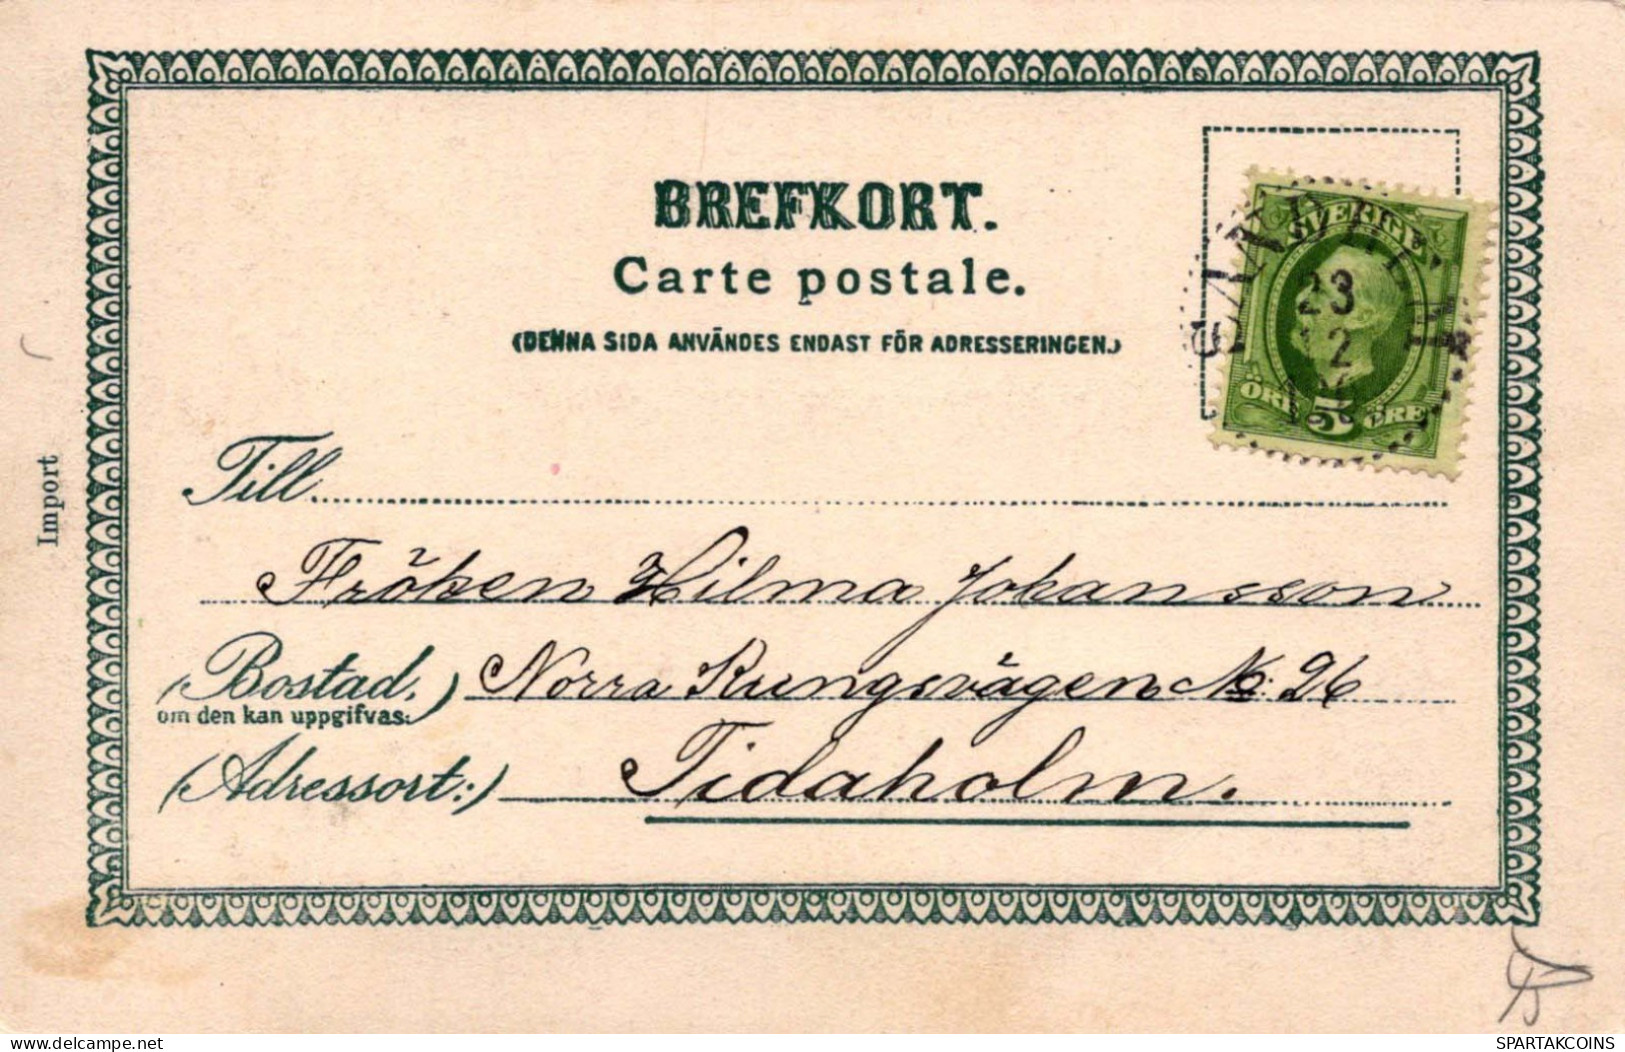 BREFKORT.
Carte postale.
(DENNA SIDA ANVÄNDES ENDAST FÖR ADRESSERINGEN.)
SVERIGE
23
12
ÖRE 5 ÖRE
Till
Fröken Hilma Johansson
(Bostad,) Norra Kungsvägen No: 26
om den kan uppgifvas:
(Adressort:) Tidaholm.
Import
delcampe.net
SPARTAKCOINS